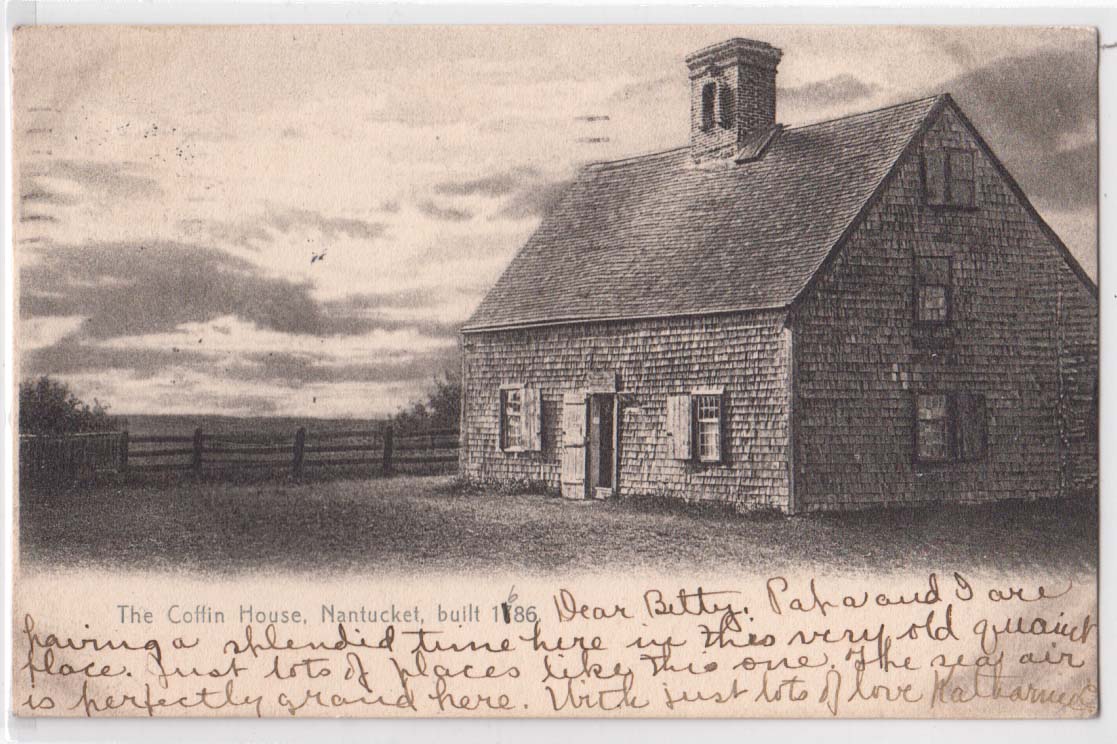 The Coffin House, Nantucket, built 1686. Dear Betty. Papa and I are
having a splendid time here in this very old quaint
place. Just lots of places like this one. The sea air
is perfectly grand here. With just lots of love Katharine